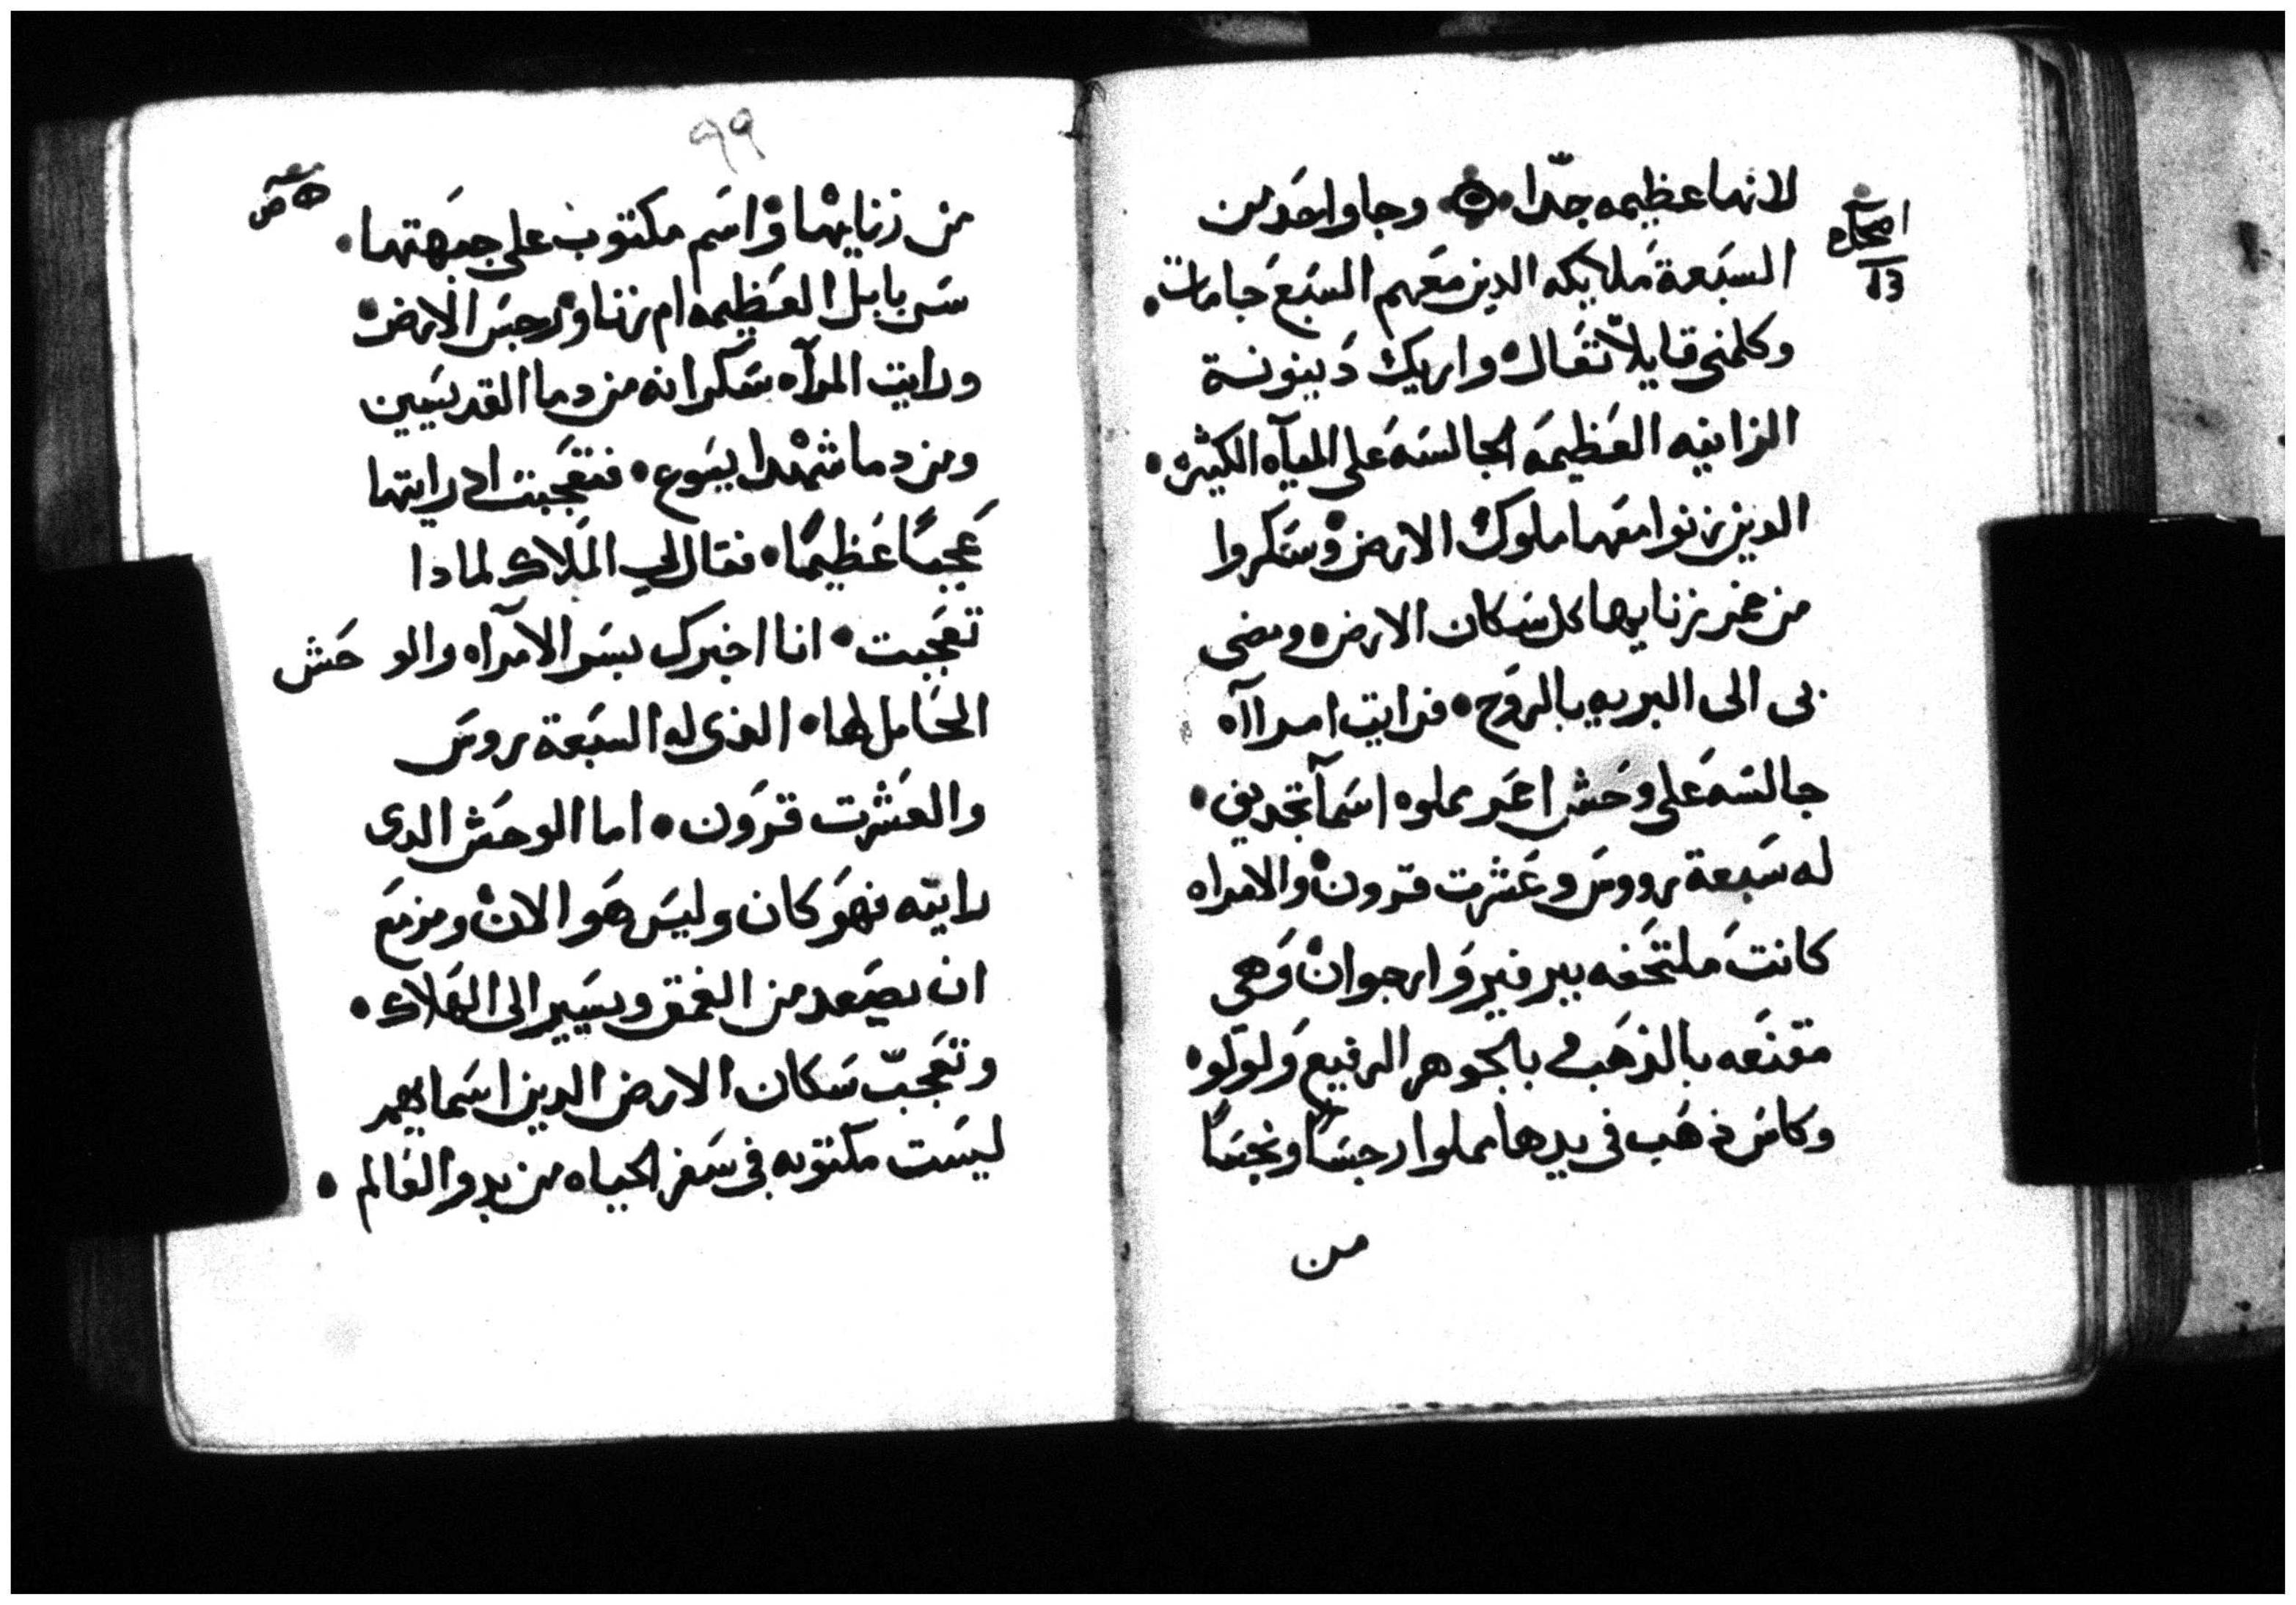 لانها عظيمه جدّا • وجا واحَد من
السبَعة مَلايكه الدين معَهم السبَع جامات •
وكلمني قايلاً تعَال واريك دَينونة
الزانيه العَظيمَه الجالسَه عَلى المياَه الكثيره •
الدين زنوا معَها ملوك الارض وسَكروا
من خمر زنايها كل سَكان الارض ومضى
بي الى البريه بالروَح • فرايت امراآه
جالسَه عَلى وحَش احمَر مملوه اسَمآ تجديف •
له سَبعة رووسَ وعَشرت قرون والامراه
كانتَ مَلتحَفه ببرفير وَارجوان وَهي
مقنعَه بالذهَب وبالجوهر الرفيع وَلولو
وكاسَ دهَب في يدها مملوا رجسَاً ونجسَاً
من
اصحاح
٩٩
من زنايها واسَم مكتوب على جبَهتها •
سَر بابل العَظيمه ام زنا ورجسَ الارض
ورايت المرآه سَكرانه من دما القديسَين
ومن دما شهدا يسَوع • فتعَجبت اد رايتها
عَجبًا عَظيمًا • فقال لي المَلاك لمادا
تعَجبت • انا اخبرك بسَر الامرآه والو حَش
الحَامل لها • الذي له السبَعة روسَ
والعَشرت قرَون • اما الوحَش الدي
رايته فهوَ كان وليسَ هَو الان ومزمَع
ان يصَعد من العَمق ويسَير الى الهَلاك •
وتعَجبّ سَكان الارض الدين اسَمايهم
ليسَت مكتوبه في سَفر الحياه من بدو العَالم •